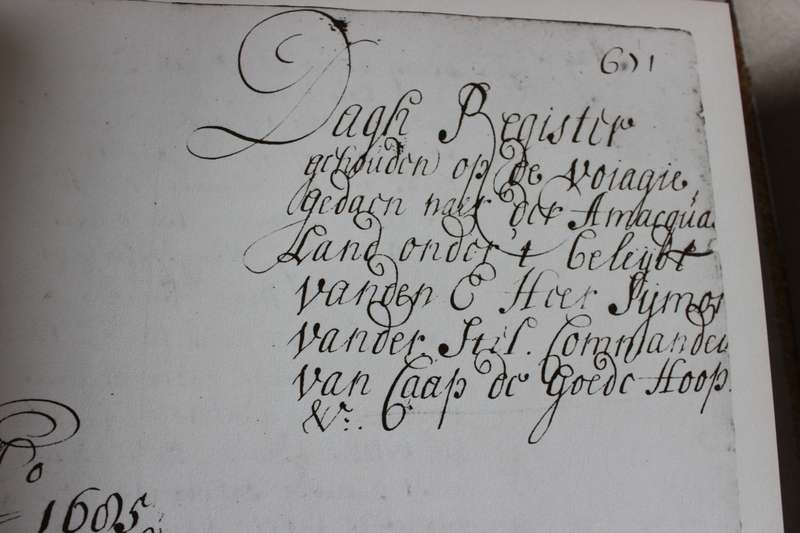 671
Dagh Register
gehouden op de voiagie
gedaen naer der Amacqua
Land onder 't beleijdt
vanden E Heer Sijmon
vander Stel. Commandeu
van Caap de Goede Hoop.
&c:
Ao
1685